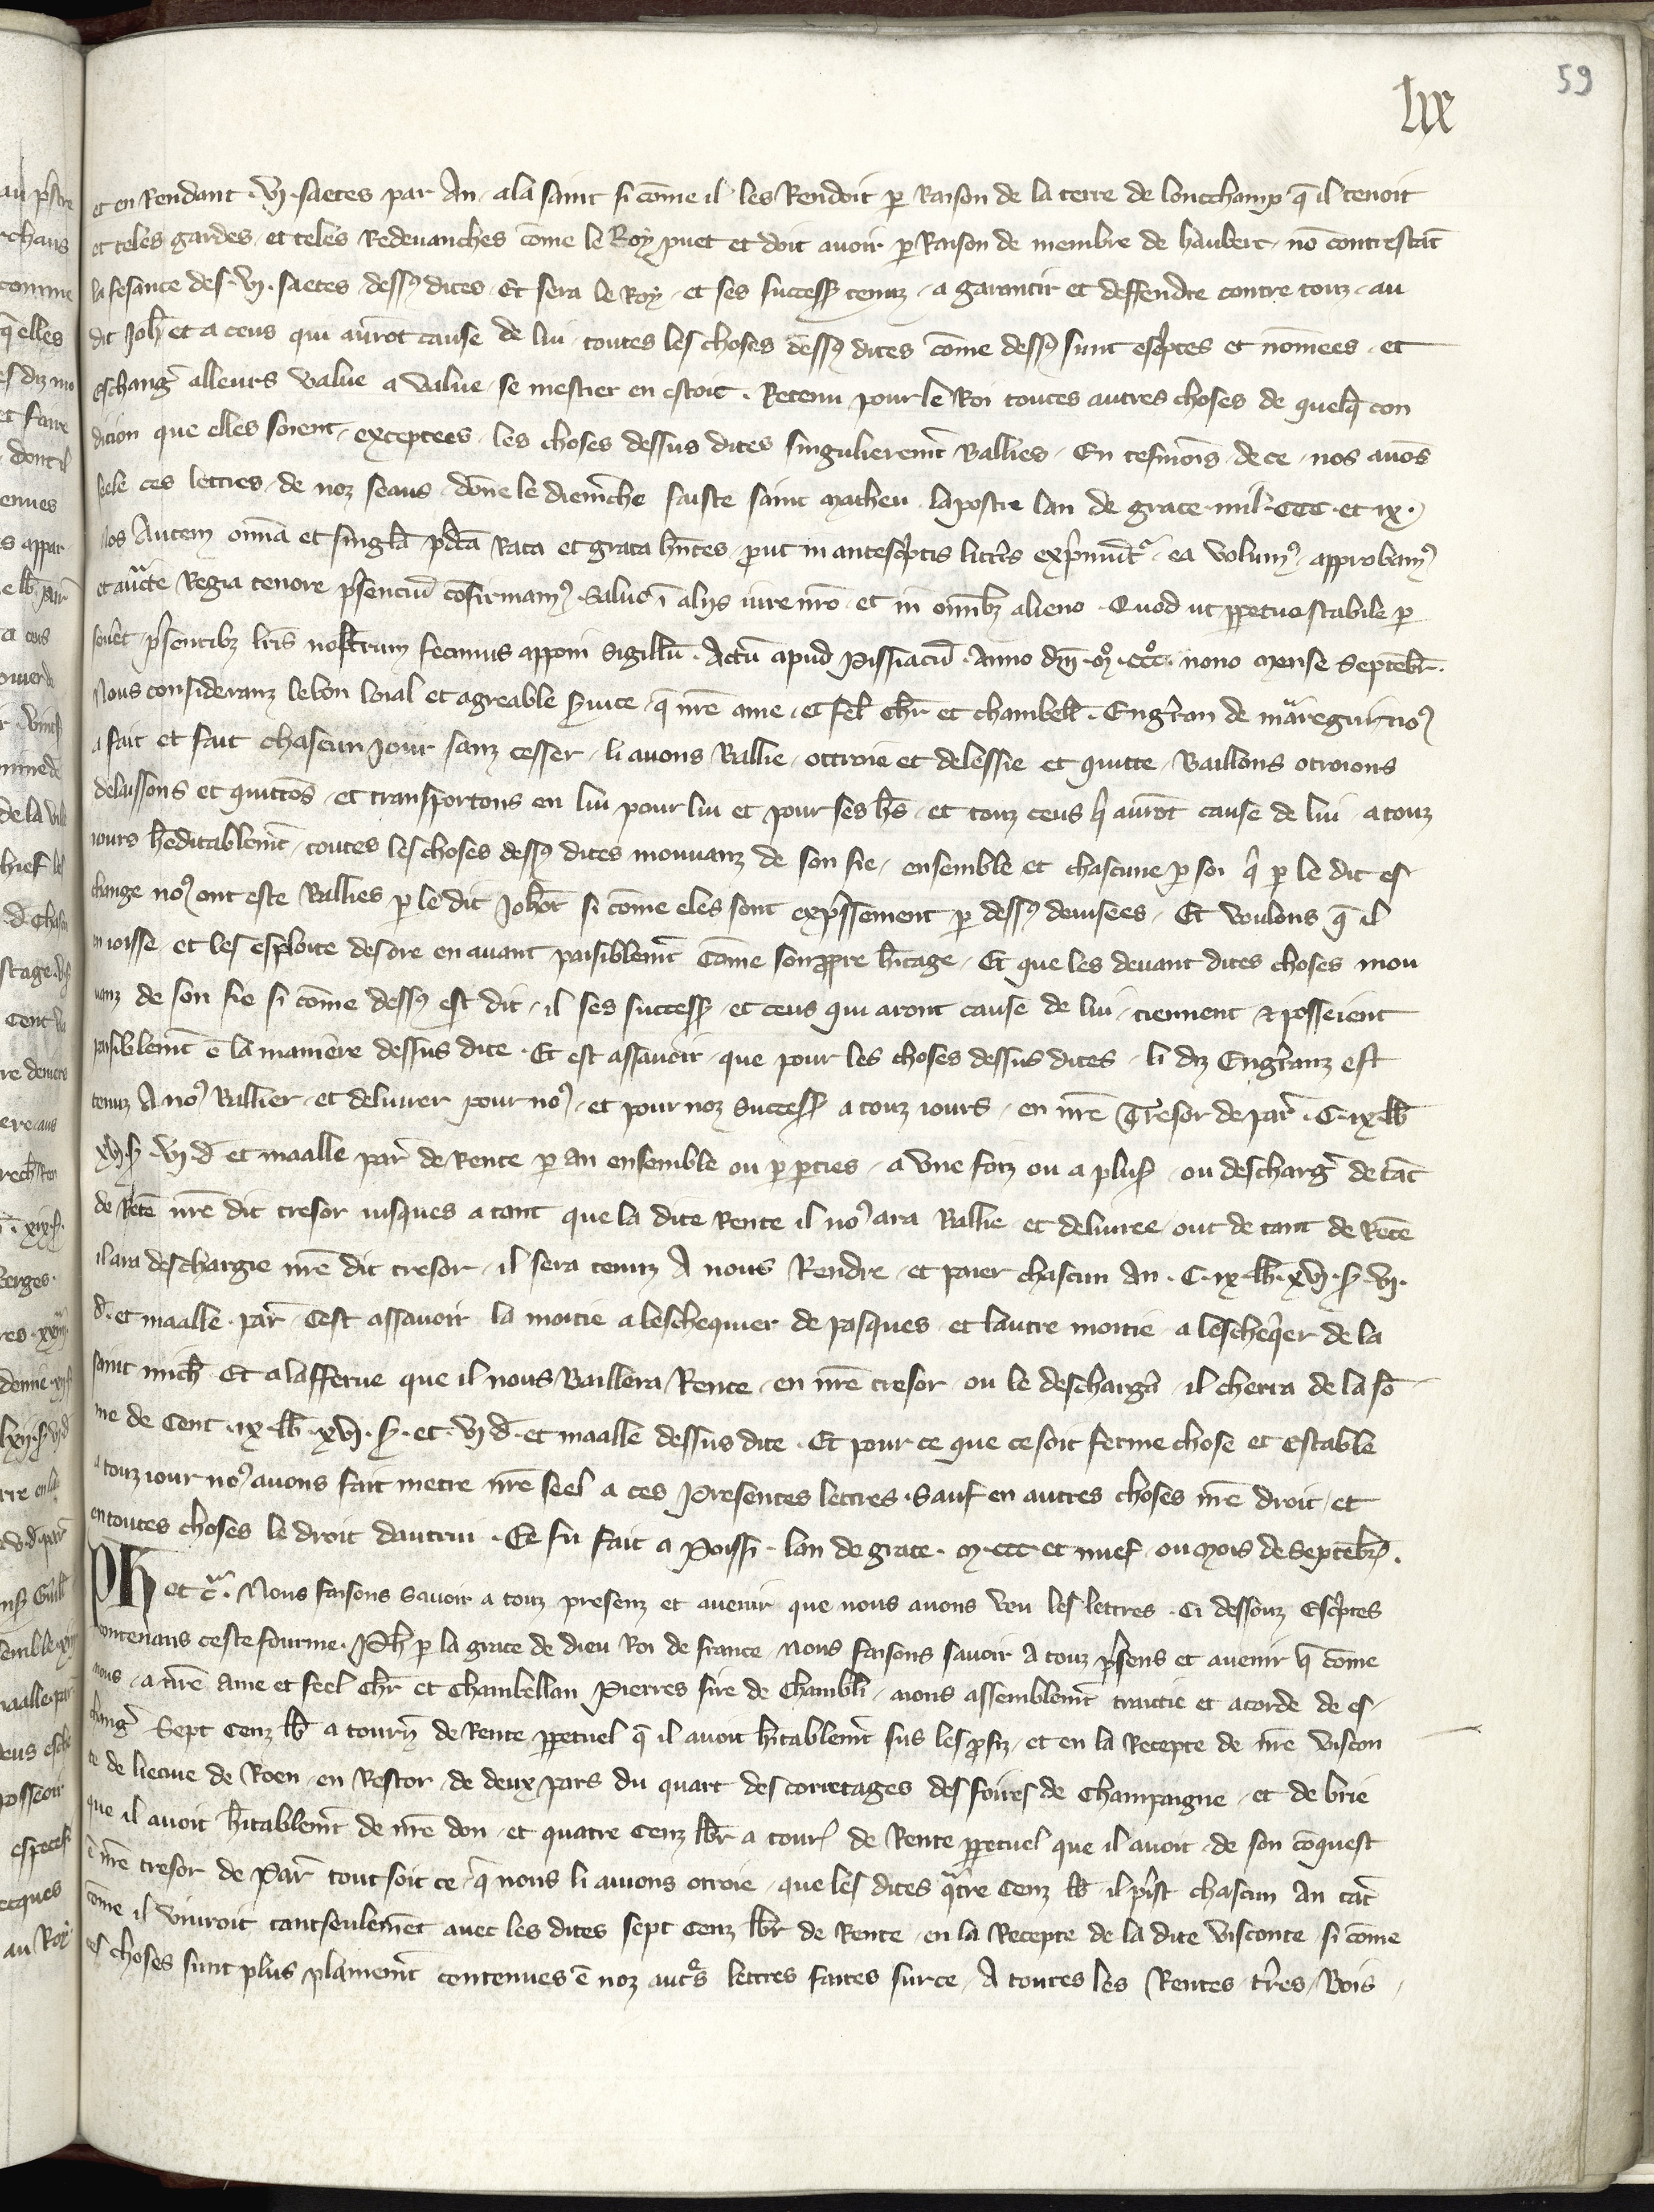 59
lix
et en Rendant .vj. saetes par An. ala saint si cōme il les Rendoit ꝑ Raison de la terre de lonchamp q̄ il tenoit
et teles gardes et teles Redeuanches cōme le Roy puet et doit auoir ꝑ Raison de membre de haubert nō contrestāt
la fesance des .vj. saetes dess⁹ dites. Et sera le Roy et ses success̃ tenuz a garantir et deffendre contre touz au
dit Joh̄ et a ceus qui aurōt cause de lui toutes les choses dess⁹ dites cōme dess⁹ sunt escͥptes et nōmees et
eschang̃ alleurs value a value se mestier en estoit. Retenu pour le Roi toutes autres choses de quelq̄ con
dicion que elles soient exceptees les choses dessus dites singulierem̄t Ballies. En tesmōis de ce nos auōs
seele ces lettres de noz seaus. dōne le diem̄che saiste saint matheu lapostre lan de grace mil. CCC. et ix.
Nos Autem om̄ia et singl̄a p̄dc̄a Rata et grata hn̄tes prout in antescͥptis litt̄is exp̄mūtᷣ ea volum⁹ approbam⁹
et auc̄te Regia tenore p̄senciū cōfirmam⁹. Saluo ī alijs iure nr̄o et in om̄ibꝫ alieno. Quod ut ꝑpetuo stabile ꝑ
seuēt p̄sentibꝫ lr̄is nostrum fecimus apponi sigillū. Actū apud pissiacū. Anno dn̄i. mͦ. cccͦ. nono mense Septembr̄.
Nous consideranz le bon loial et agreable s̃uice q̄ nr̄e ame et feel ch̄r et chambell̄. Eng̃ran de maregni no⁹
a fait et fait chascun Jour sanz cesser li auons Ballie ottroie et delessie et quitte Baillons otroions
delaissons et quittōs et transportons en lui pour lui et pour ses hr̄s et touz ceus qͥ aurōt cause de lui a touz
iours h̄editablem̄t toutes les choses dess⁹ dites mouuanz de son fie ensemble et chascune ꝑ soi qͥ ꝑ le dit es
change no⁹ ont este Ballies ꝑ le dit Johōt si cōme eles sont exp̄ssement ꝑ dess⁹ deuisees. Et voulons q̄ il
en ioisse et les esploite desore en auant paisiblem̄t Cōme son ꝓpre h̄itage. Et que les deuant dites choses mou
uanz de son fie si cōme dess⁹ est dit il ses success̃ et ceus qui aront cause de lui tiennent et posseient
paisiblem̄t ē la maniere dessus dite. Et est assauoir que pour les choses dessus dites li diz Eng̃ranz est
tenuz A no⁹ Ballier et deliurer pour no⁹ et pour noz success̃ a touz iours en nr̄e Tresor de par̃ .C. ix. lb̄
xvj. s̃. vj. d̄ et maalle par̃ de Rente ꝑ an ensemble ou ꝑ ꝑties a vne foiz ou a plus̃ ou descharg̃ de tāt
de Rēte nr̄e dit tresor iusques a tant que la dite Rente il no⁹ ara Ballie et deliuree out de tant de Rēte
il ara deschargie nr̄e dit tresor il sera tenuz A nous Rendre et paier chascun An. C. ix. lb̄. xvj. s̃. vj.
d̄. et maalle. par̃ Cest assauoir la moitie a leschequier de pasques et lautre moitie a leschēq̄er de la
saint mich̄. Et a lafferue que il nous Baillera Rente en nr̄e tresor ou le descharg̃a il cherra de la sō
me de Cent. ix. lb̄. xvj. s̃. et. vj d̄. et maalle dessus dite. Et pour ce que ce soit ferme chose et estable
a touz iour no⁹ auons fait metre nr̄e seel a ces presentes lettres. Sauf en autres choses nr̄e droit et
en toutes choses le droit dautrui. Ce fu fait a Poissi. lan de grace. m. ccc. et nuef ou mois de Septēbr̃.
Ph̄ et c̃. Nous faisons sauoir a touz presenz et auenir que nous auons veu les lettres. Ci dessouz escͥptes
contenans ceste fourme. Ph̄ ꝑ la grace de dieu Roi de france. nous faisons sauoir A touz p̄sens et auenir q̄ cōme
nous a nr̄e ame et feel ch̄r et Chambellan Pierres sire de Chambli aions assemblem̄t traittie et acorde de es
chang̃ Sept Cenz lb̄ a tourñ de Rente ꝑpetuel q̄ il auoit h̄itablem̄t sus les ꝓfiz et en la Recepte de nr̄e viscon
te de lieaue de Roen en Restor de deux pars du quart des corretages des foires de Champaigne et de brie
que il auoit h̄itablem̄t de nr̄e don et quatre Cenz lb̄r a tour̃ de Rente ꝑpetuel que il auoit de son cōquest
ē nr̄e tresor de Par̃ tout soit ce q̄ nous li auions otroie que les dites qͣtre Cenz lb̄ il p̄ist chascun An tāt
cōme il viuroit tantseulemēt auec les dites sept Cenz lb̄r de Rente en la Recepte de la dite visconte si cōme
ces choses sunt plus plainem̄t contenues ē noz autͤs lettres faites sur ce A toutes les Rentes tr̄res Bois